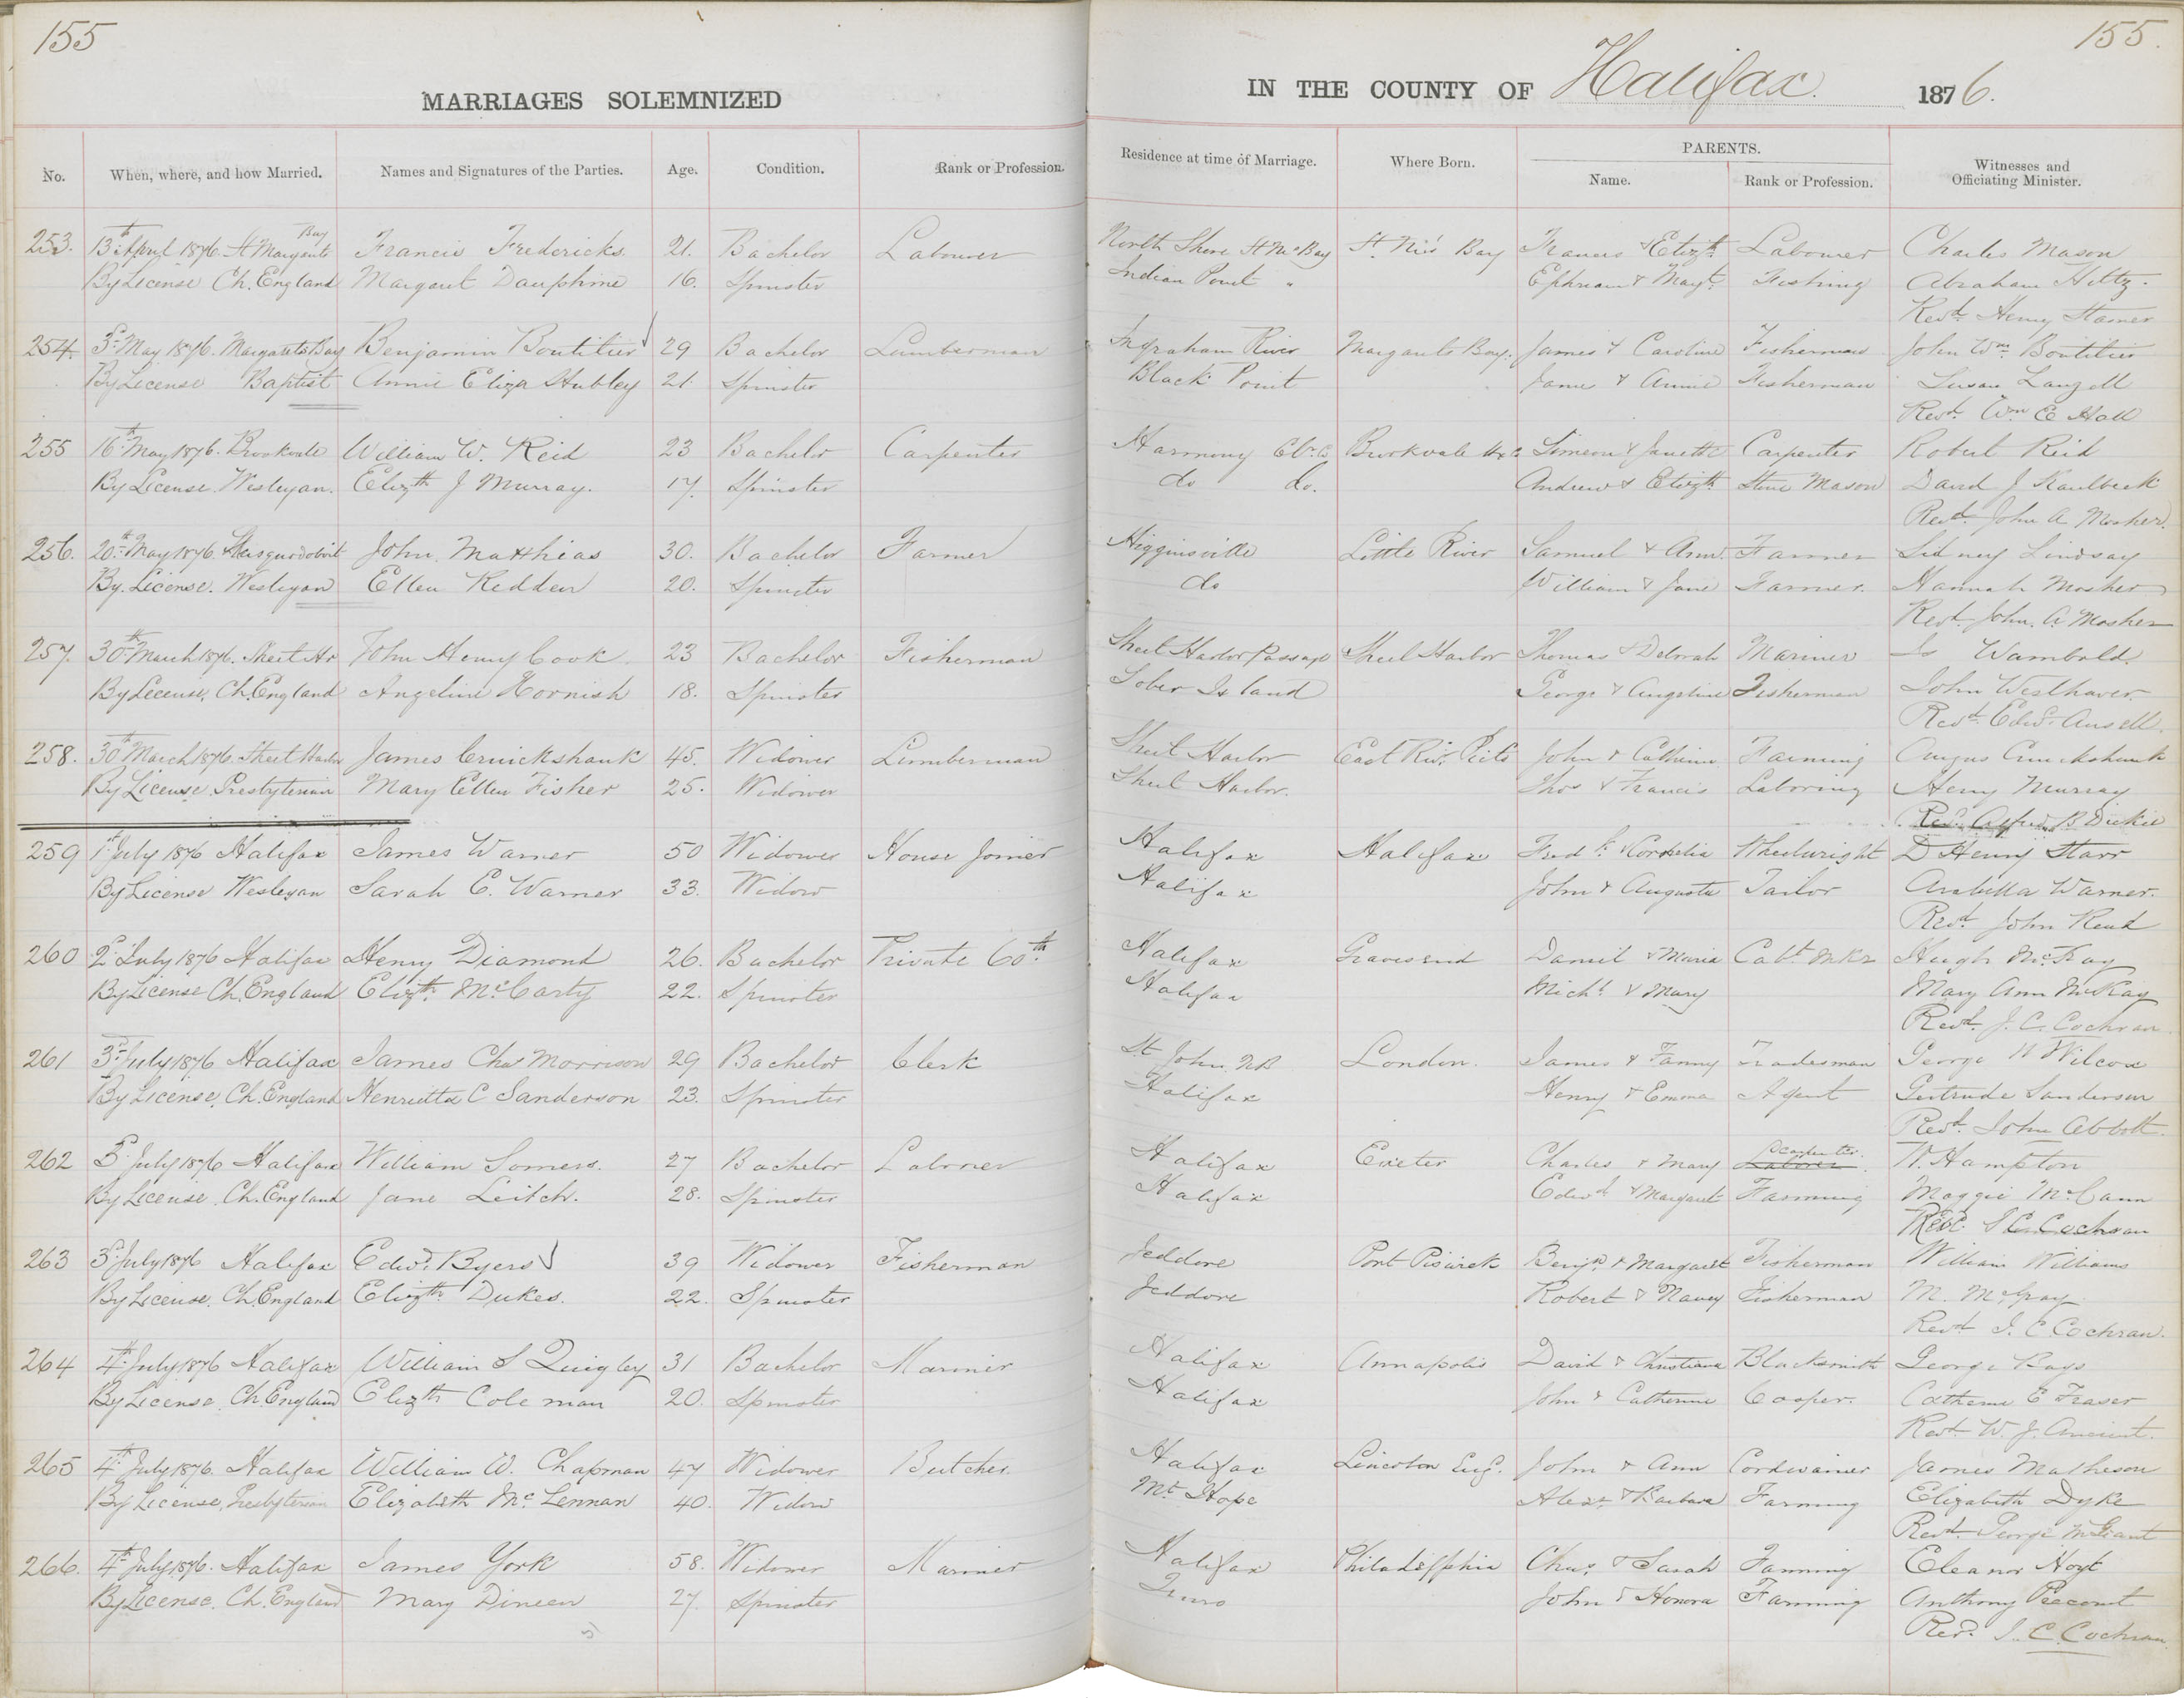 155
155.
MARRIAGES SOLEMNIZED IN THE COUNTY OF Halifax. 1876.
No. When, where, and how Married. Names and Signatures of the Parties. Age. Condition. Rank or Profession. Residence at time of Marriage. Where Born. PARENTS. Name. Rank or Profession. Witnesses and Officiating Minister.
253. 13th April 1876. St Margarets Bay Francis Fredericks. 21. Bachelor Labourer North Shore St Ms Bay St. Bay Francis & Elizth Labourer Charles Mason
By License Ch. England Margaret Dauphine 16. Spinster Indian Point " Ephriam & Margt. Fishing Abraham Hiltz.
Revd. Henry Stamer
254. 3d May 1876. Margarets Bay Benjamin Boutilier 29 Bachelor Lumberman Ingraham River Margarets Bay. James & Caroline Fisherman John Wm Boutilier
By License Baptist Annie Eliza Hubley 21. Spinster Black Point James & Annie Fisherman Susan Langell
Revd. Wm E Hall
255 16th May 1876. Brookvale William W. Reid 23 Bachelor Carpenter Harmony Brookvale Simeon & Janette Carpenter Robert Reid
By License. Wesleyan. Elizth J Murray. 17. Spinster do do. Andrew & Elizth Stone Mason David J Kaulbeck
Revd. John A Mosher.
256. 20th May 1876. John Matthias 30. Bachelor Farmer Higginsville Little River Samuel & Ann. Farmer Sidney Lindsay
By License. Wesleyan Ellen Redden 20. Spinster do William & Jane Farmer. Hannah Mosher
Revd. John. A Mosher
257. 30th March 1876. Sheet Hr John Henry Cook. 23 Bachelor Fisherman Sheet Harbor Passage Sheet Harbor Thomas & Deborah Mariner Wambold.
By License, Ch. England Angeline Hornish 18. Spinster Sober Island George & Angeline Fisherman John Westhaver.
Revd. Edwd. Ansell.
258. 30th March 1876. Sheet Harbor James Cruickshank 45. Widower Lumberman Sheet Harbor East Riv. Picto John & Catherine Farming Angus Cruickshank
By License. Presbyterian Mary Ellen Fisher 25. Widower Sheet Harbor. Thos & Francis Laboring Henry Murray
Revd. Alfred B Dickie
259 1st July 1876 Halifax James Warner 50 Widower House Joiner Halifax Halifax Fredk & Cordelia Wheelwright D Henry Starr
By License Wesleyan Sarah E. Warner 33. Widow Halifax John & Augusta Tailor Arabella Warner.
Revd. John Read
260 2d July 1876 Halifax Henry Diamond 26. Bachelor Private 60th. Halifax Gravesend Daniel & Maria Cabt Mkr Hugh McKay
By License Ch. England Elizth. McCarty 22. Spinster Halifax Michl & Mary Mary Ann McKay
Revd. J. C. Cochran
261 3rd July 1876 Halifax James Chas Morrison 29 Bachelor Clerk St John NB London. James & Fanny Tradesman George W Wilcox
By License, Ch. England Henrietta C Sanderson 23. Spinster Halifax Henry & Emma Agent Gertrude Sanderson
Revd. John Abbott.
262 3d July 1876 Halifax William Somers. 27 Bachelor Laborer Halifax Exeter Charles & Mary Carpenter. Laborer. W. Hampton
By License. Ch. England Jane Leitch. 28. Spinster Halifax Edwd & Margaret Farming Maggie McCann
Revd. J C. Cochran
263 3d July 1876 Halifax Edwd. Byers 39 Widower Fisherman Jeddore Port Benjn. & Margaret Fisherman William Williams
By License. Ch. England Elizth Dukes. 22. Spinster Jeddore Robert & Nancy Fisherman M.
Revd J. C Cochran.
264 4th July 1876 Halifax William S Quigley 31 Bachelor Mariner Halifax Annapolis David & Christiana Blacksmith George Bays
By License. Ch. England Elizth Coleman 20. Spinster Halifax John & Catherine Cooper. Catherine E Fraser
Revd. W. J. Ancient.
265 4th July 1876. Halifax William W. Chapman 47 Widower Butcher. Halifax Lincolon Eng. John & Ann Cordwainer James Matheson
By License, Presbyterian Elizabeth McLennan 40. Widow Mt Hope Alexr. & Barbara Farming Elizabeth Dyke
Revd. George M Grant
266. 4th July 1876. Halifax James York 58. Widower Mariner Halifax Philadelphia Chas. & Sarah Farming Eleanor Hoyt
By License. Ch. England Mary Dineen 27. Spinster Truro John & Honora Farming Anthony
Revd. J. C. Cochran